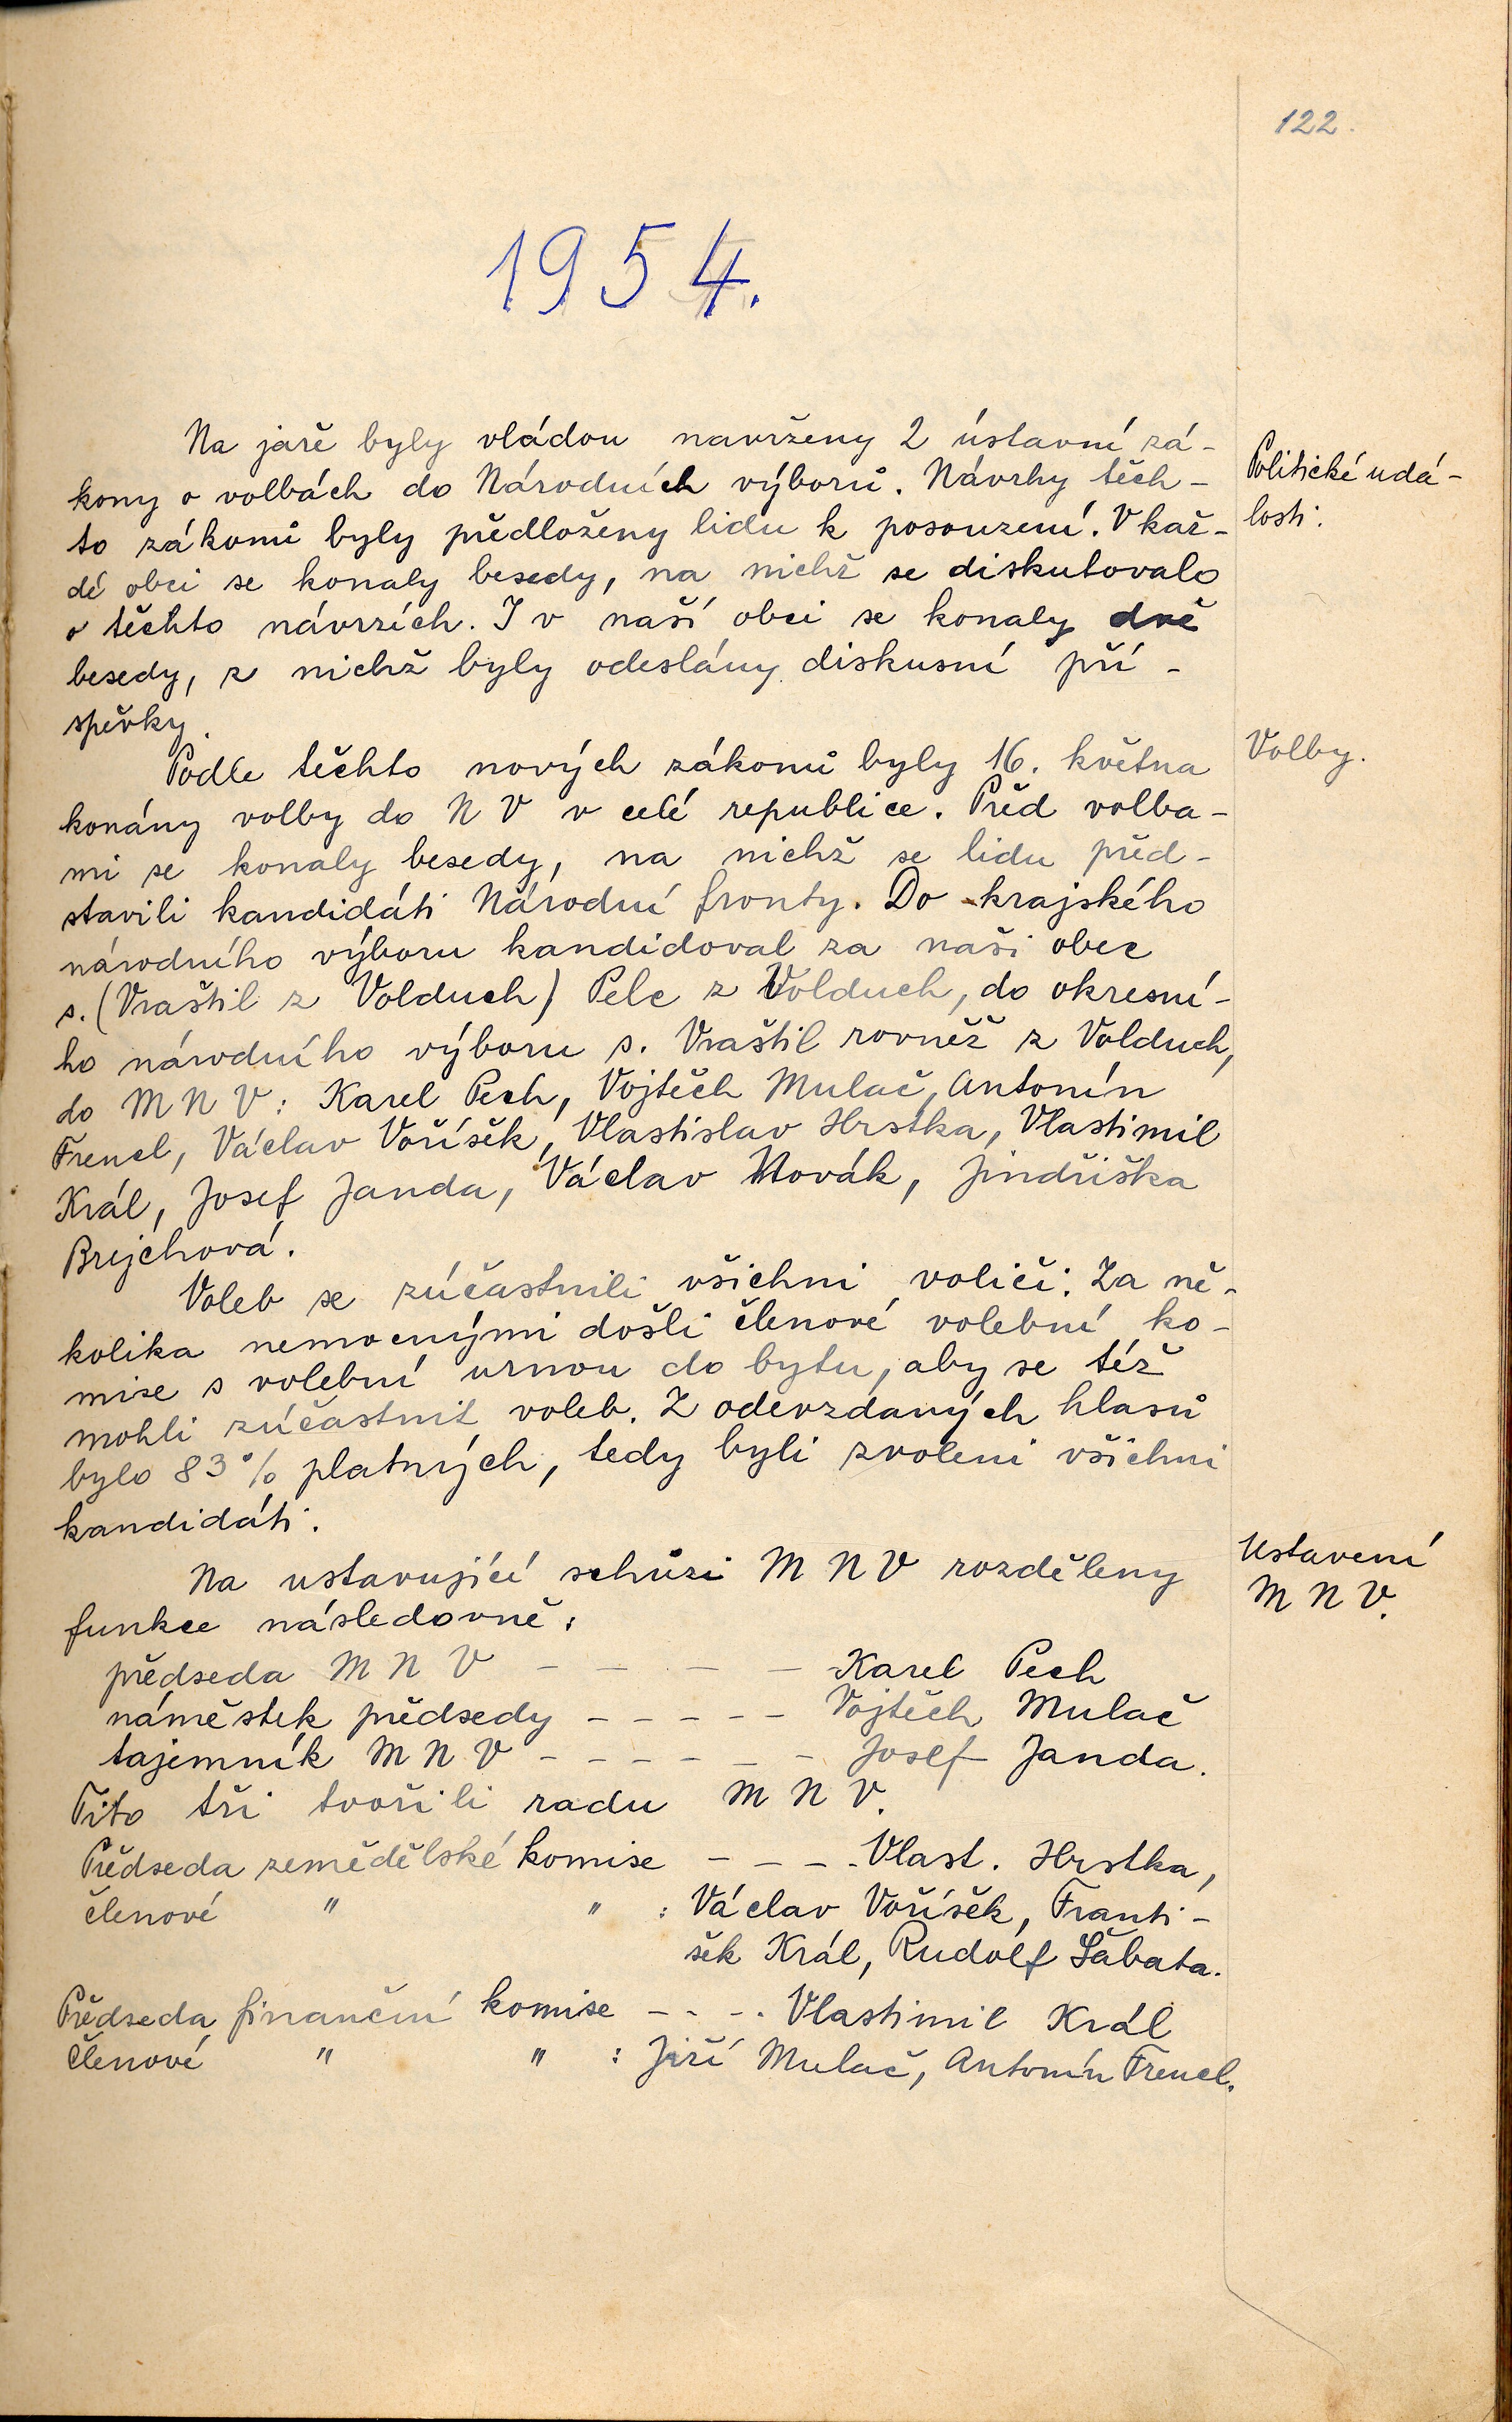 122.
1954.
Na jaře byly vládou navrženy 2 ústavní zá-
kony o volbách do Národních výborů. Návrhy těch-
to zákonů byly předloženy lidu k posouzení. V kaž-
dé obci se konaly besedy, na nichž se diskutovalo
o těchto návrzích. I v naší obci se konaly dvě
besedy, z nichž byly odeslány diskusní pří-
spěvky.
Politické udá-
losti.
Podle těchto nových zákonů byly 16. května
konány volby do N V v celé republice. Před volba-
mi se konaly besedy, na nichž se lidu před-
stavili kandidáti Národní fronty. Do krajského
národního výboru kandidoval za naši obec
s. (Vraštil z Volduch) Pelc z Volduch, do okresní-
ho národního výboru s. Vraštil rovněž z Volduch,
do M N V: Karel Pech, Vojtěch Mulač, Antonín
Frencl, Václav Voříšek, Vlastislav Hrstka, Vlastimil
Král, Josef Janda, Václav Novák, Jindřiška
Brejchová.
Volby.
Voleb se zúčastnili všichni voliči. Za ně-
kolika nemocnými došli členové volební ko-
mise s volební urnou do bytu, aby se též
mohli zúčastnit voleb. Z odevzdaných hlasů
bylo 83% platných, tedy byli zvoleni všichni
kandidáti.
Na ustavující schůzi M N V rozděleny
funkce následovně:
Ustavení
M N V.
předseda M N V - - - - - Karel Pech
náměstek předsedy - - - - - Vojtěch Mulač
tajemník M N V - - - - - - Josef Janda.
Tito tři tvořili radu M N V.
Předseda zemědělské komise - - - - Vlast. Hrstka,
členové " " : Václav Voříšek, Franti-
šek Král, Rudolf Šabata.
Předseda finanční komise - - - . Vlastimil Král
Členové " " : Jiří Mulač, Antonín Frencl.